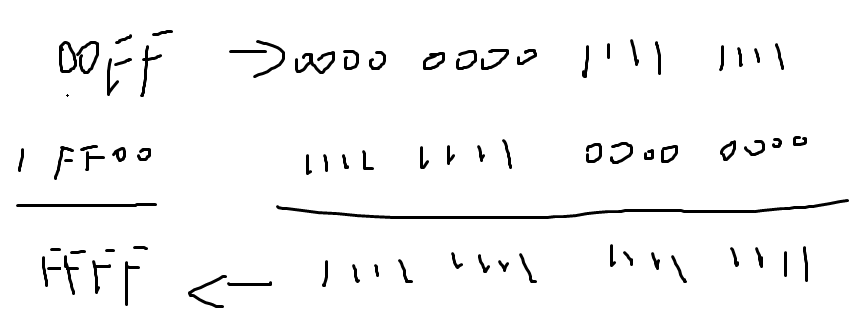 00FF → 0000 0000 1111 1111
| FF00 1111 1111 0000 0000
FFFF ← 1111 1111 1111 1111